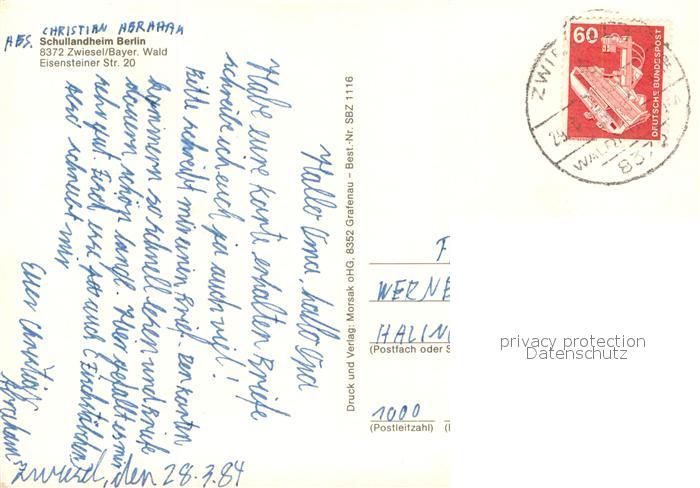 ABS. CHRISTIAN ABRAHAM
Schullandheim Berlin
8372 Zwiesel/Bayer. Wald
Eisensteiner Str. 20
Hallo Oma, hallo Opa
Habe eure Karte erhalten Briefe
schreibe ich euch ja auch viel!
Bitte schreibt mir einen Brief. Den Karten
kommen so schnell lesen und Briefe
dauern schön lange. Hier gefällt es mir
sehr gut. Fisch esse ich auch (Fischstäbchen)
also schreibt mir
Euer Christian
Abraham
Zwiesel, den 28.3.84
Druck und Verlag: Morsak oHG, 8352 Grafenau – Best.-Nr. SBZ 1116
60
DEUTSCHE BUNDESPOST
ZWIE
29.
WALD
837
F
WERNE
HALIN
(Postfach oder S
1000
(Postleitzahl)
privacy protection
Datenschutz